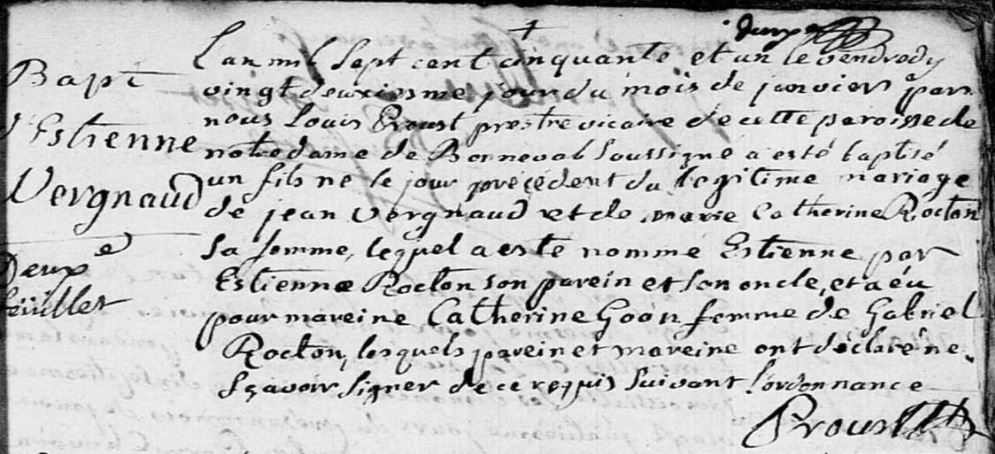 deux
L'an mil sept cent cinquante et un le vendredy
Bapt
vingt deuxiesme jour du mois de janvier par
nous Louis Proust prestre vicaire de cette paroisse de
d'Estienne
notre dame de Bonneval soussigné a esté baptisé
Vergnaud
un fils né le jour précédent du légitime mariage
de jean Vergnaud et de marie Catherine Rocton
sa femme, lequel a esté nommé Estienne par
Deuxe
Estienne Rocton son parein et son oncle, et a éu
feüillet
pour mareine Catherine Goon femme de Gabriel
Rocton, lesquels parein et mareine ont déclaré ne
sçavoir signer de ce requis suivant l'ordonnance
Proust